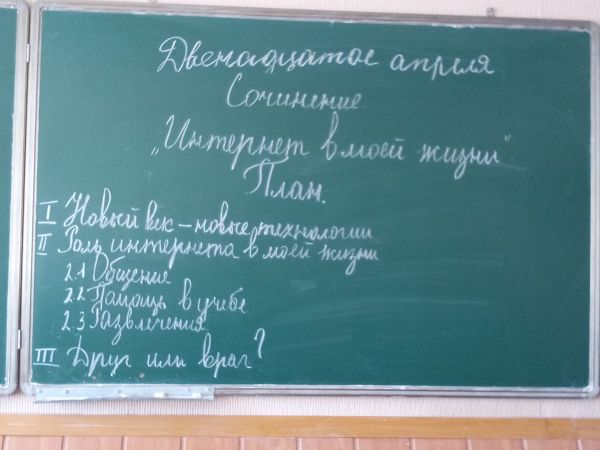 Двенадцатое апреля
Сочинение
„Интернет в моей жизни"
План.
I Новый век – новые технологии
II Роль интернета в моей жизни
2.1 Общение
2.2 Помощь в учебе
2.3 Развлечения
III Друг или враг?